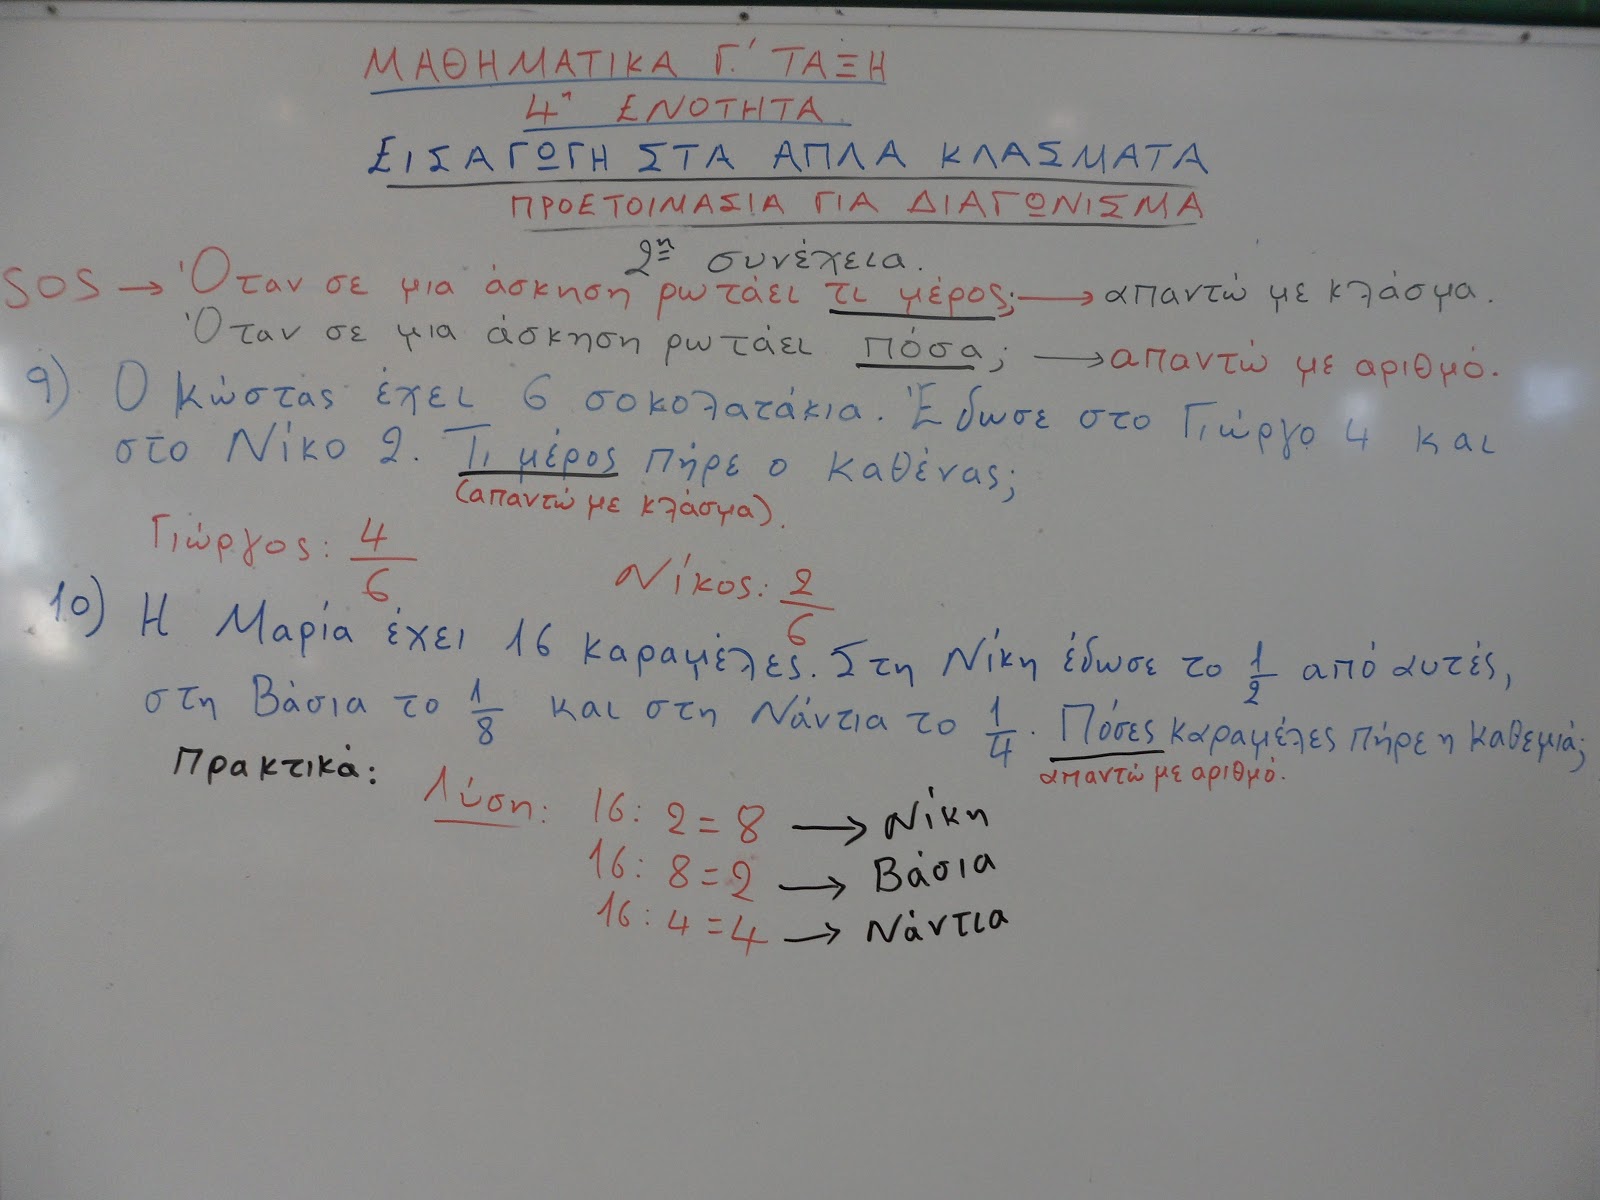 ΜΑΘΗΜΑΤΙΚΑ Γ΄ ΤΑΞΗ
4η ΕΝΟΤΗΤΑ
ΕΙΣΑΓΩΓΗ ΣΤΑ ΑΠΛΑ ΚΛΑΣΜΑΤΑ
ΠΡΟΕΤΟΙΜΑΣΙΑ ΓΙΑ ΔΙΑΓΩΝΙΣΜΑ
2η συνέχεια.
SOS → Όταν σε μια άσκηση ρωτάει τι μέρος; → απαντώ με κλάσμα.
Όταν σε μια άσκηση ρωτάει πόσα; → απαντώ με αριθμό.
9) Ο Κώστας έχει 6 σοκολατάκια. Έδωσε στο Γιώργο 4 και
στο Νίκο 2. Τι μέρος πήρε ο καθένας;
(απαντώ με κλάσμα).
Γιώργος: 4/6 Νίκος: 2/6
10) Η Μαρία έχει 16 καραμέλες. Στη Νίκη έδωσε το 1/2 από αυτές,
στη Βάσια το 1/8 και στη Νάντια το 1/4. Πόσες καραμέλες πήρε η καθεμιά;
απαντώ με αριθμό.
Πρακτικά:
Λύση: 16: 2=8 → Νίκη
16: 8=2 → Βάσια
16: 4=4 → Νάντια